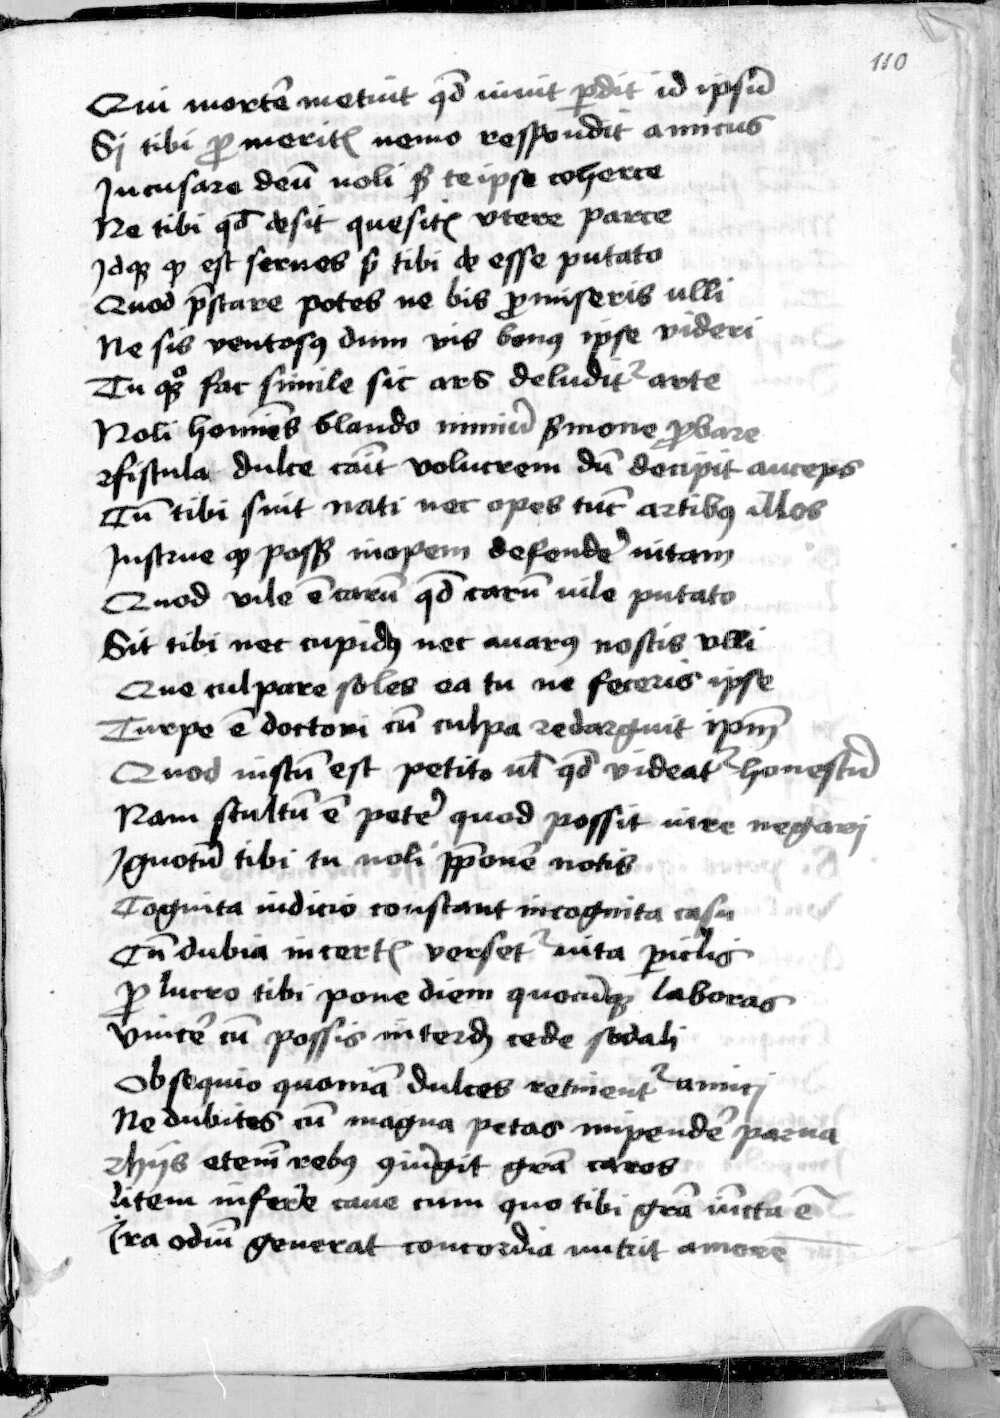 110
Qui mortē metuit qđ uiuit ꝑdit id ipsū
Sj tibi ꝓ meritꝭ nemo respondit amicus
Jncusare deū noli sꝫ te ipse coherce
Ne tibi qđ desit quesitꝭ vtere parce
Jdqꝫ qꝫ est serues sꝫ tibi de esse putato
Quod p̄stare potes ne bis ꝓmiseris ulli
Ne sis ventosꝰ dum vis bonꝰ ipse videri
Tu qꝫ fac simile sic ars deluditᷣ arte
Noli homīes blando nimiū ẜmone ꝓbare
fistula dulce canit volucrem dū decipit auceps
Cū tibi sint nati nec opes tūc artibꝰ illos
Jnstrue qꝫ possīt inopem defendeʼ uitam
Quod vile ē carū qđ carū uile putato
Sit tibi nec cupidꝰ nec auarꝰ nostis vlli
Que culpare soles ea tu ne feceris ipse
Turpe ē doctori cū culpa redarguit ipm̄
Quod iustū est petito ul̄ qđ videatᷣ honestū
Nam stultū ē peteʼ quod possit iure negari
Jgnotū tibi tu noli p̄ponē notis
Cognita iudicio constant incognita casu
Cū dubia incertꝭ versetᷣ uita ꝑiclis
ꝓ lucro tibi pone diem quocūqꝫ laboras
vinceʼ cū possis interdū cede sodali
Obsequio quoniā dulces retinentᷣ amicj
Ne dubites cū magna petas inpendeʼ parua
hijs etenī rebꝰ ꝯiūgit grā caros
litem inferre caue cum quo tibi grā iūcta ē
Jra odiū generat concordia nutrit amorē